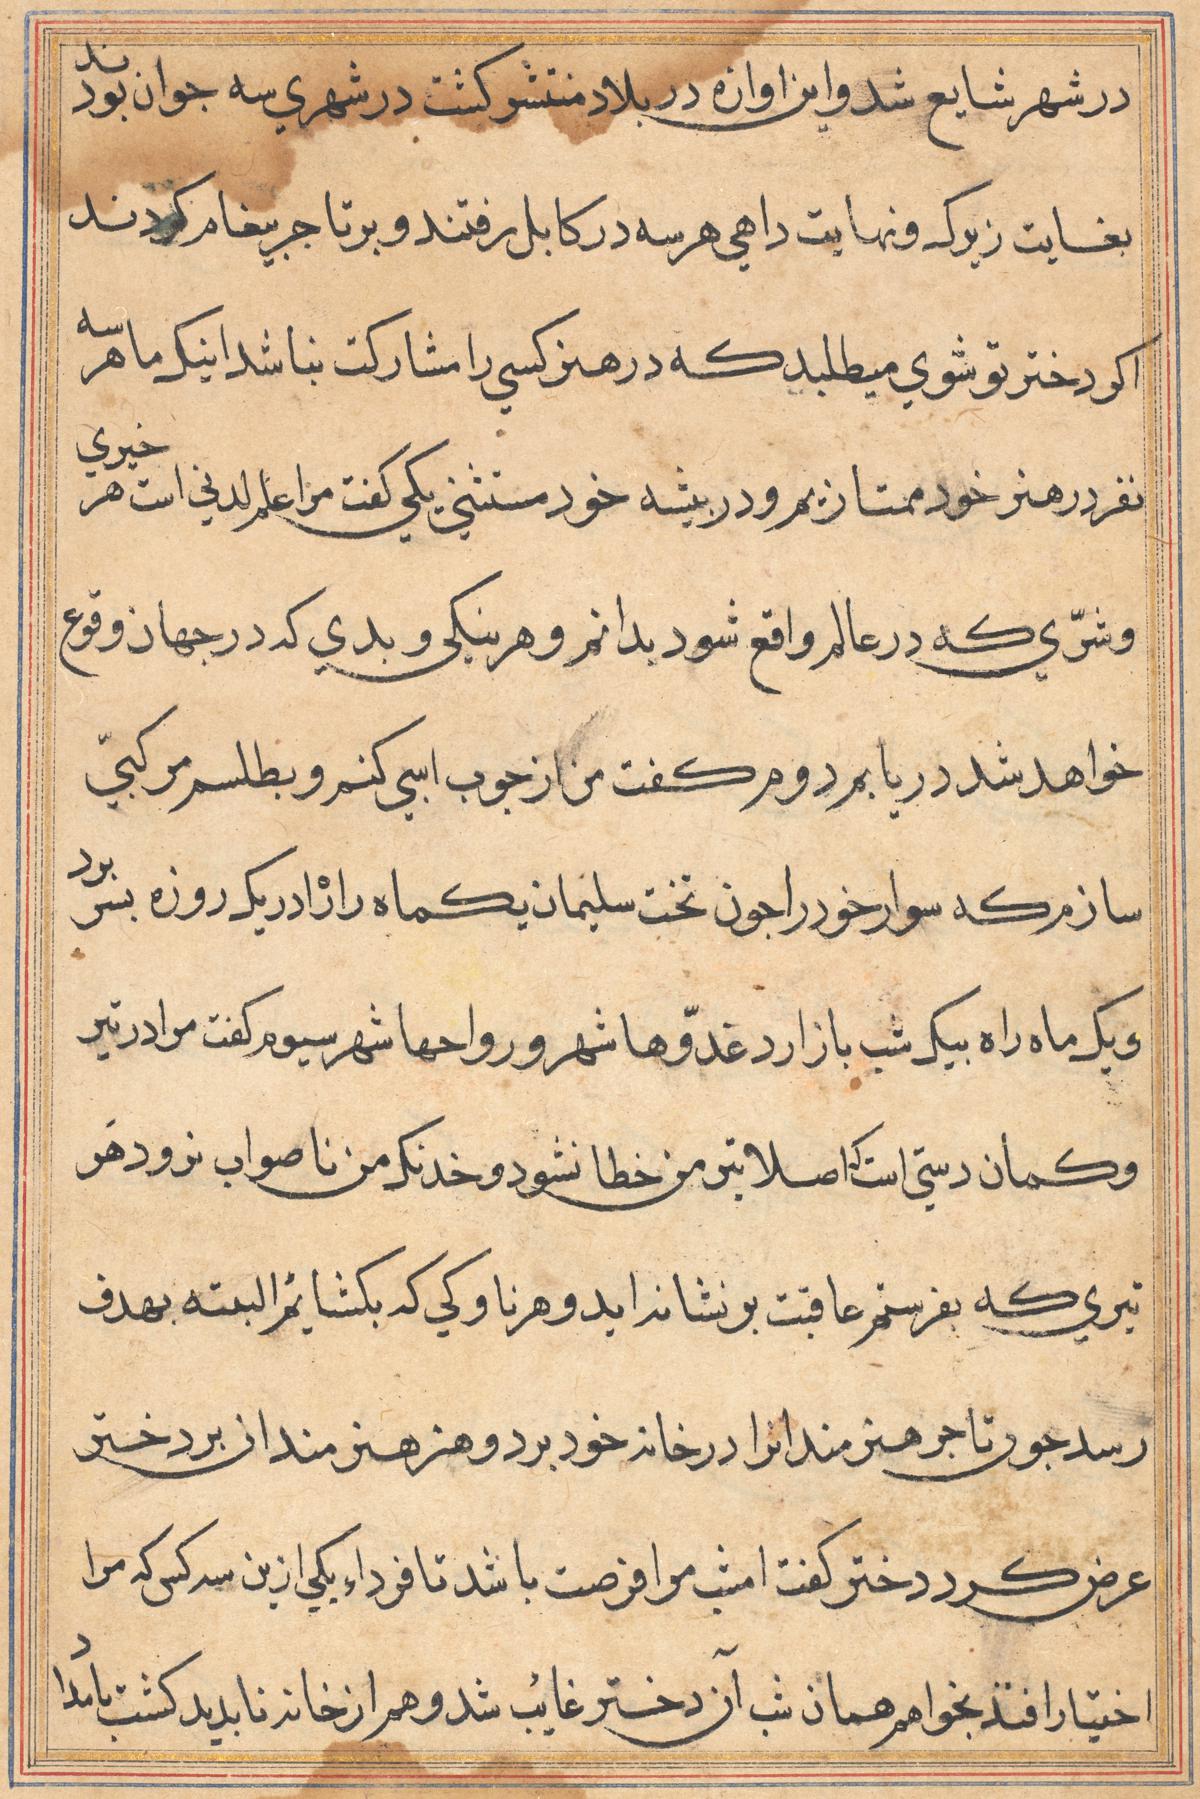 در شهر شایع شد واین اوازه در بلاد منتشر کشت در شهري سه جوان بودند
بغایت زیرک ونهایت داهي هر سه در کابل رفتند و بر تاجر پیغام کردند
اکر دختر تو شوي میطلبد که در هنر کسي را مشارکت نباشد اینک ما هر سه
نفر در هنر خود ممتازیم و در پیشه خود مستثني یکي کفت مرا علم لدني است هر خیري
وشرّي که در عالم واقع شود بدانم و هر نیکي و بدي که در جهان وقوع
خواهد شد دریابم دوم کفت من از جوب اسپي کنم و بطلسم مرکبيّ
سازم که سوار خود را جون تخت سلیمان یکماه راۀ را در یک روزه بسر برد
ویک ماه راه بیک شب باز ارد غدوّها شهر و رواحها شهر سیوم کفت مرا در تیر
وکمان دستي است که اصلا تیر من خطا نشود و خدنک من ناصواب نرود هر
تیري که بفرستم عاقبت بر نشانه اید و هر ناوکي که بکشایم البته بهدف
رسد جون تاجر هنرمندانرا در خانه خود برد و هنر هنرمندان بر دختر
عرض کرد دختر کفت امشب مرا فرصت باشد تا فرداء یکي ازین سه کس که مرا
اختیار افتد بخواهم همان شب آن دختر غایب شد و هم از خانه نابدید کشت بامداد